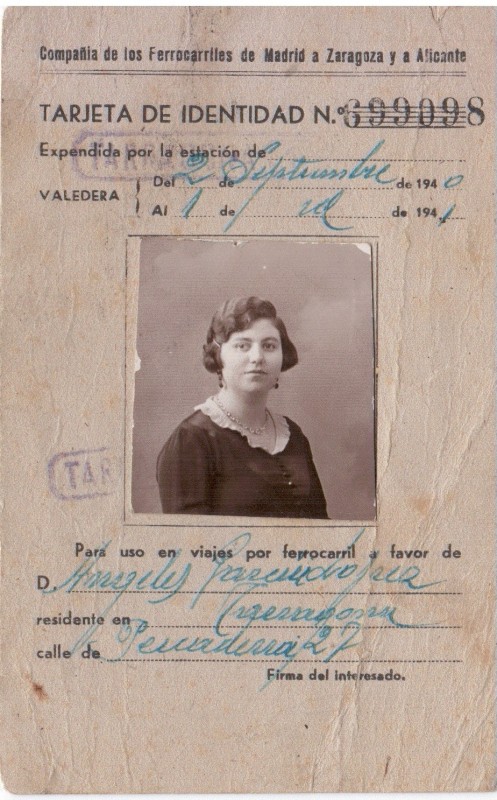 Compañia de los Ferrocarriles de Madrid a Zaragoza y a Alicante
TARJETA DE IDENTIDAD N.º 699098
Expendida por la estación de
TAR
VALEDERA
Del 2 de Septiembre de 1940
Al 1 de id de 1941
TAR
Para uso en viajes por ferrocarril a favor de
D. Angeles
residente en Tarragona
calle de 27
Firma del interesado.